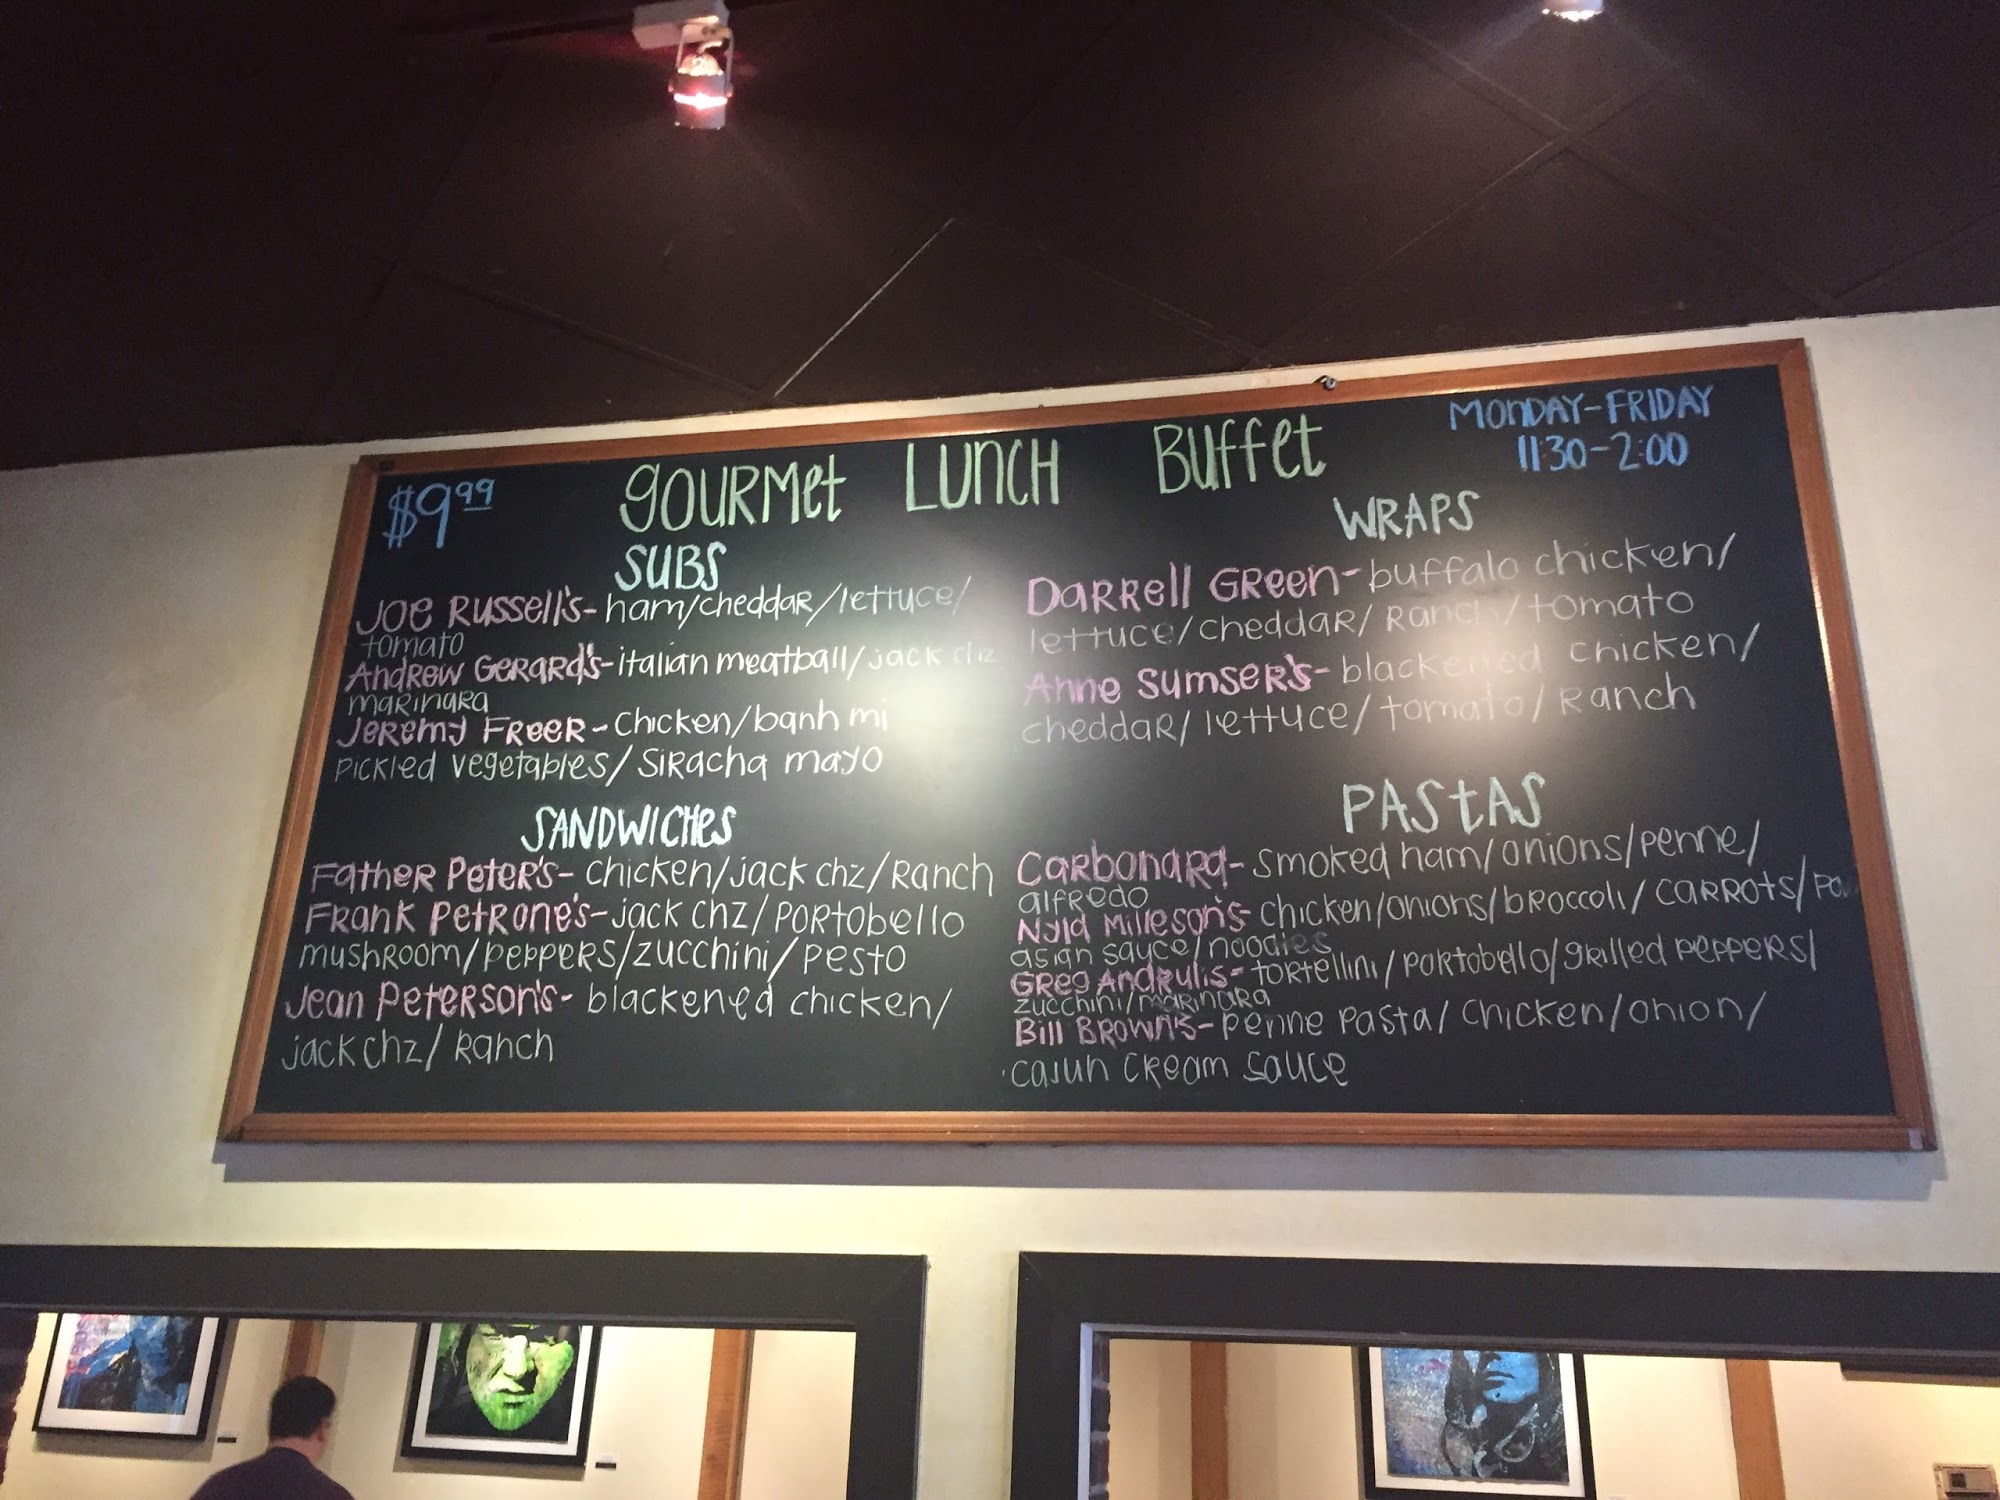 $9.99
gourmet Lunch Buffet
Monday-Friday
11:30-2:00
Subs
Joe Russell's- ham/cheddar/lettuce/
tomato
Andrew Gerard's- italian meatball/jack chz
marinara
Jeremy Freer- chicken/banh mi
pickled vegetables/Siracha mayo
Sandwiches
Father Peter's- chicken/jack chz/Ranch
Frank Petrone's- jack chz/portobello
mushroom/peppers/zucchini/pesto
Jean Peterson's- blackened chicken/
jack chz/Ranch
Wraps
Darrell Green- buffalo chicken/
lettuce/cheddar/Ranch/tomato
Anne Sumser's- blackened chicken/
cheddar/lettuce/tomato/Ranch
Pastas
Carbonara- smoked ham/onions/penne/
alfredo
Nyla Milleson's- chicken/onions/broccoli/carrots/
asian sauce/noodles
Greg Andrulis- tortellini/portobello/grilled peppers/
zucchini/marinara
Bill Brown's- penne pasta/chicken/onion/
cajun cream sauce